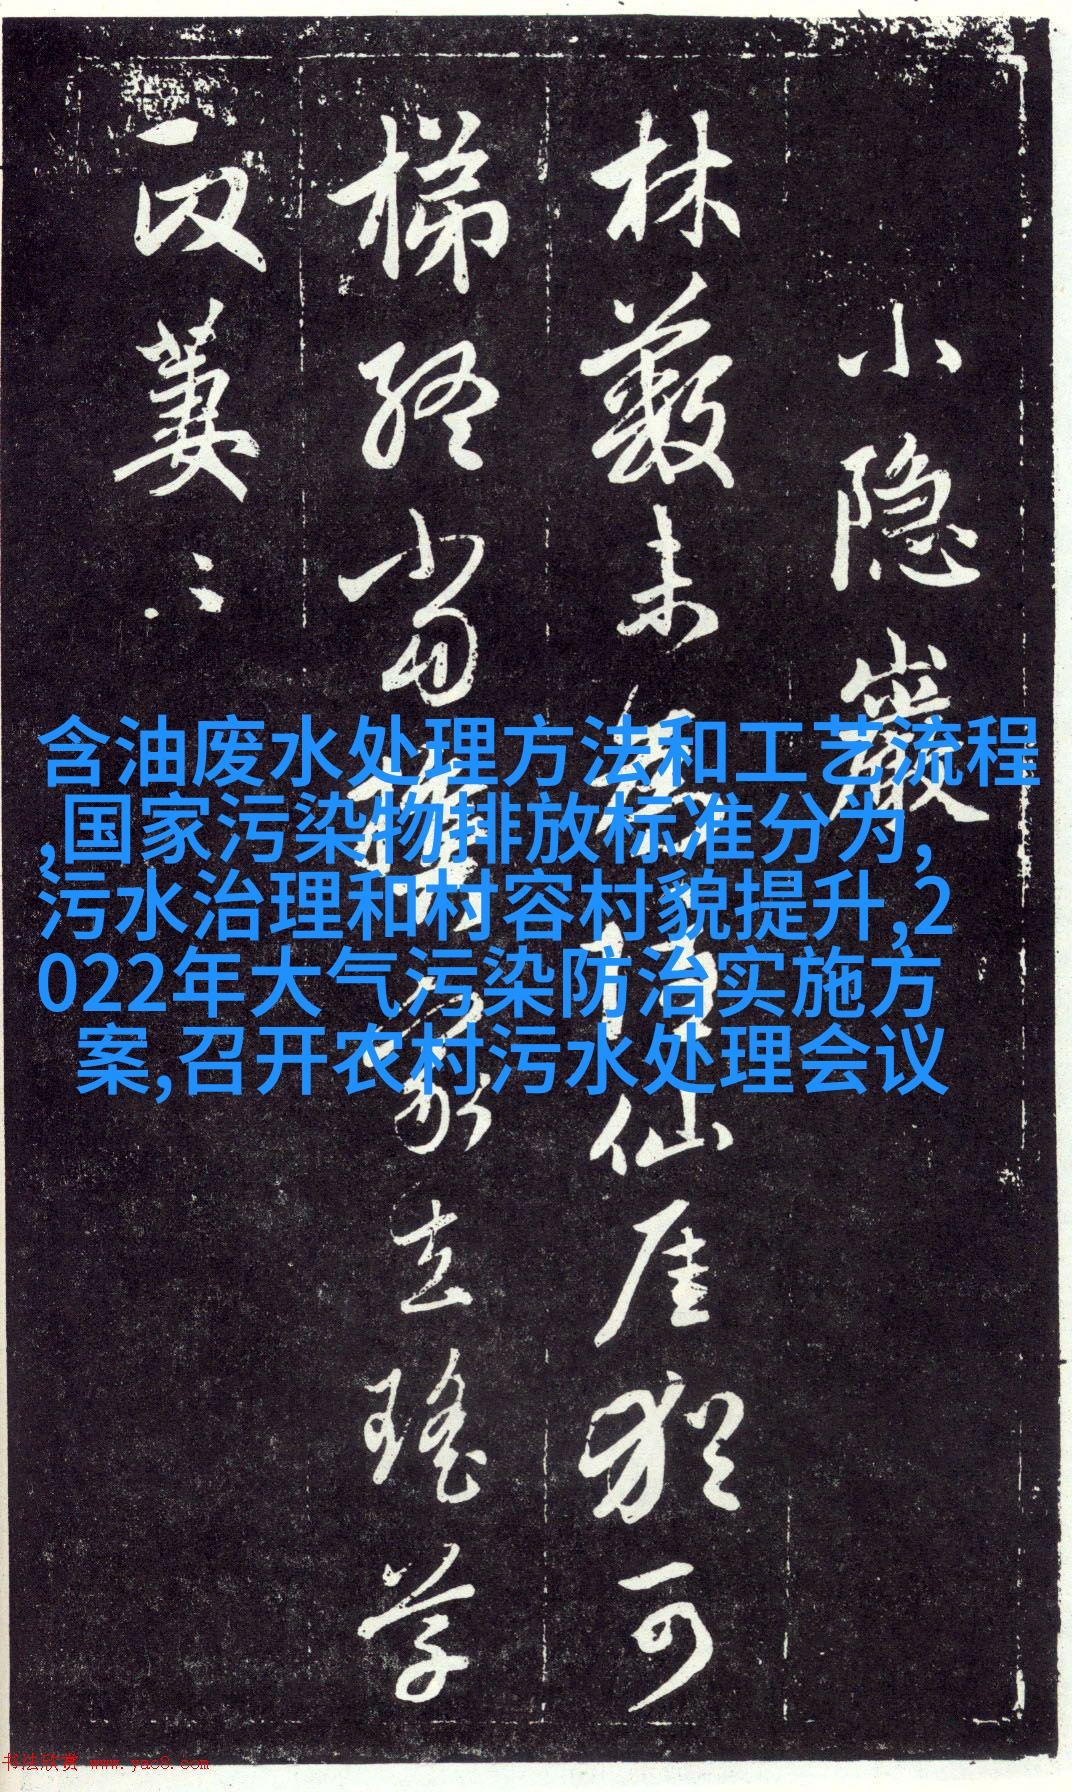 小隐巖
林薮未
仙厓犹可
梯经当
家立瑶草
一段萋〻
含油废水处理方法和工艺流程
,国家污染物排放标准分为,
污水治理和村容村貌提升,2
022年大气污染防治实施方
案,召开农村污水处理会议
书法欣赏 www.yac8.com